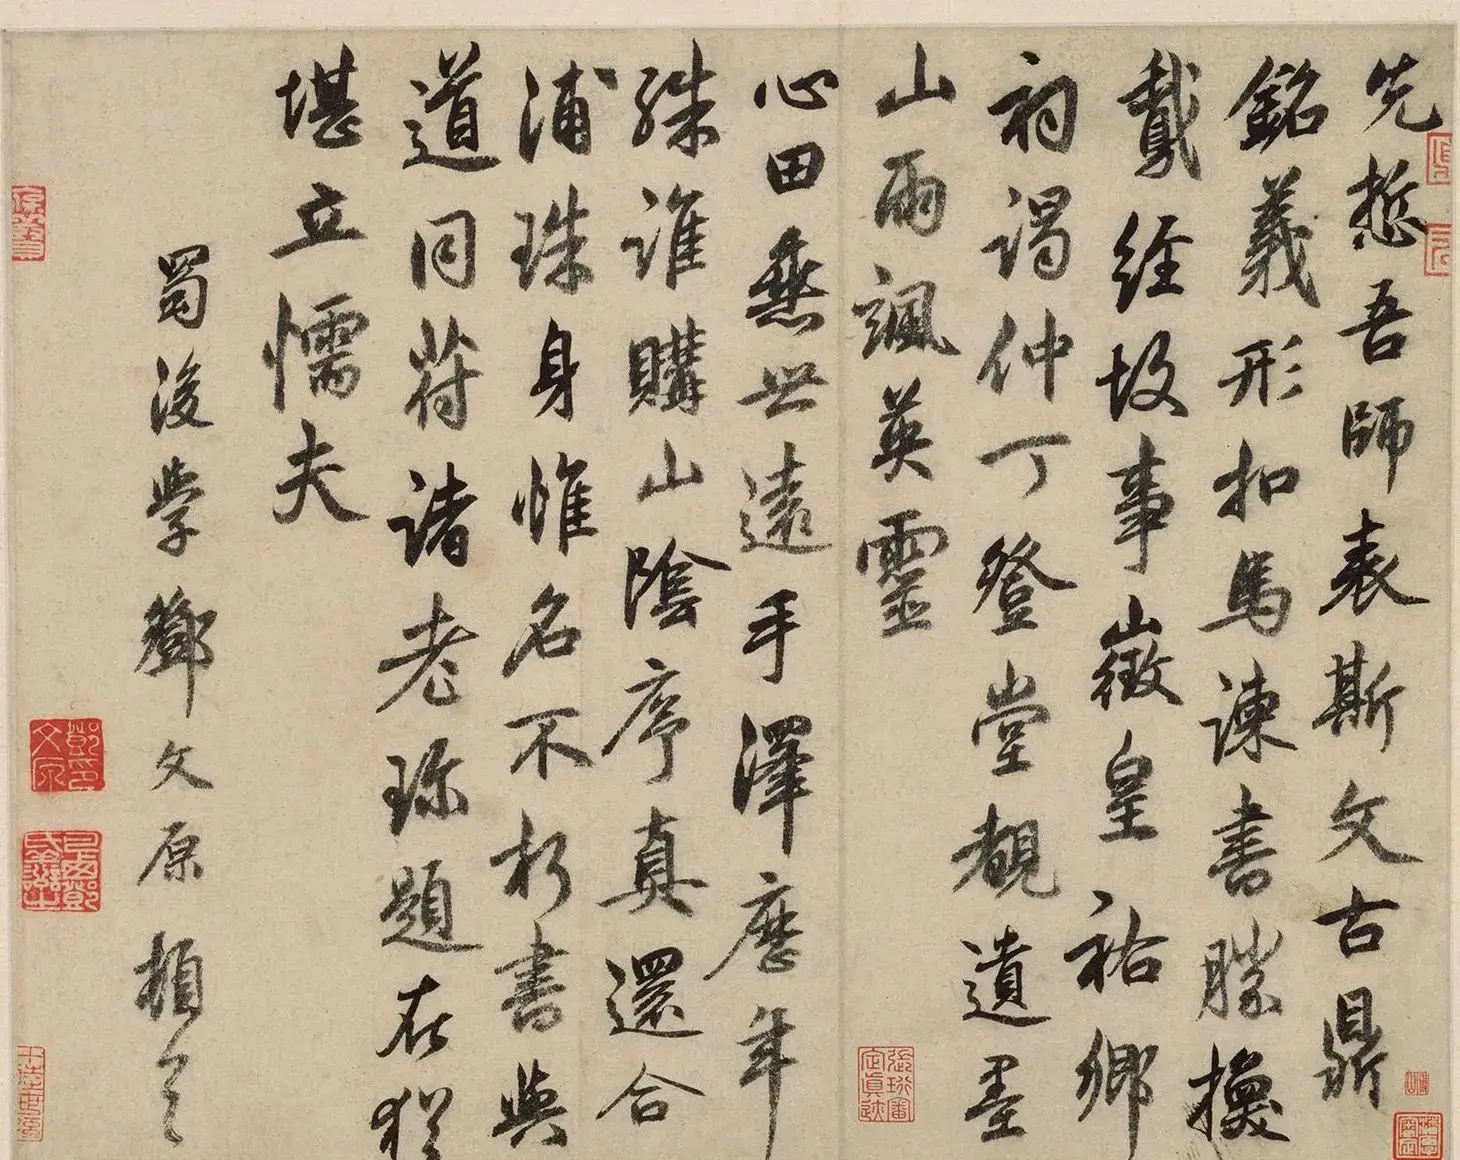 先哲吾師表斯文古鼎
銘義形扣馬諫書勝換
鵞經故事嶶皇祐鄉
祠謁仲丁登堂覩遺墨
山雨颯英靈
心田垂世遠手澤歷年
殊誰購山陰序真還合
浦珠身惟名不朽書與
道同符諸老珎題在猶
堪立懦夫
蜀後學鄧文原頓首